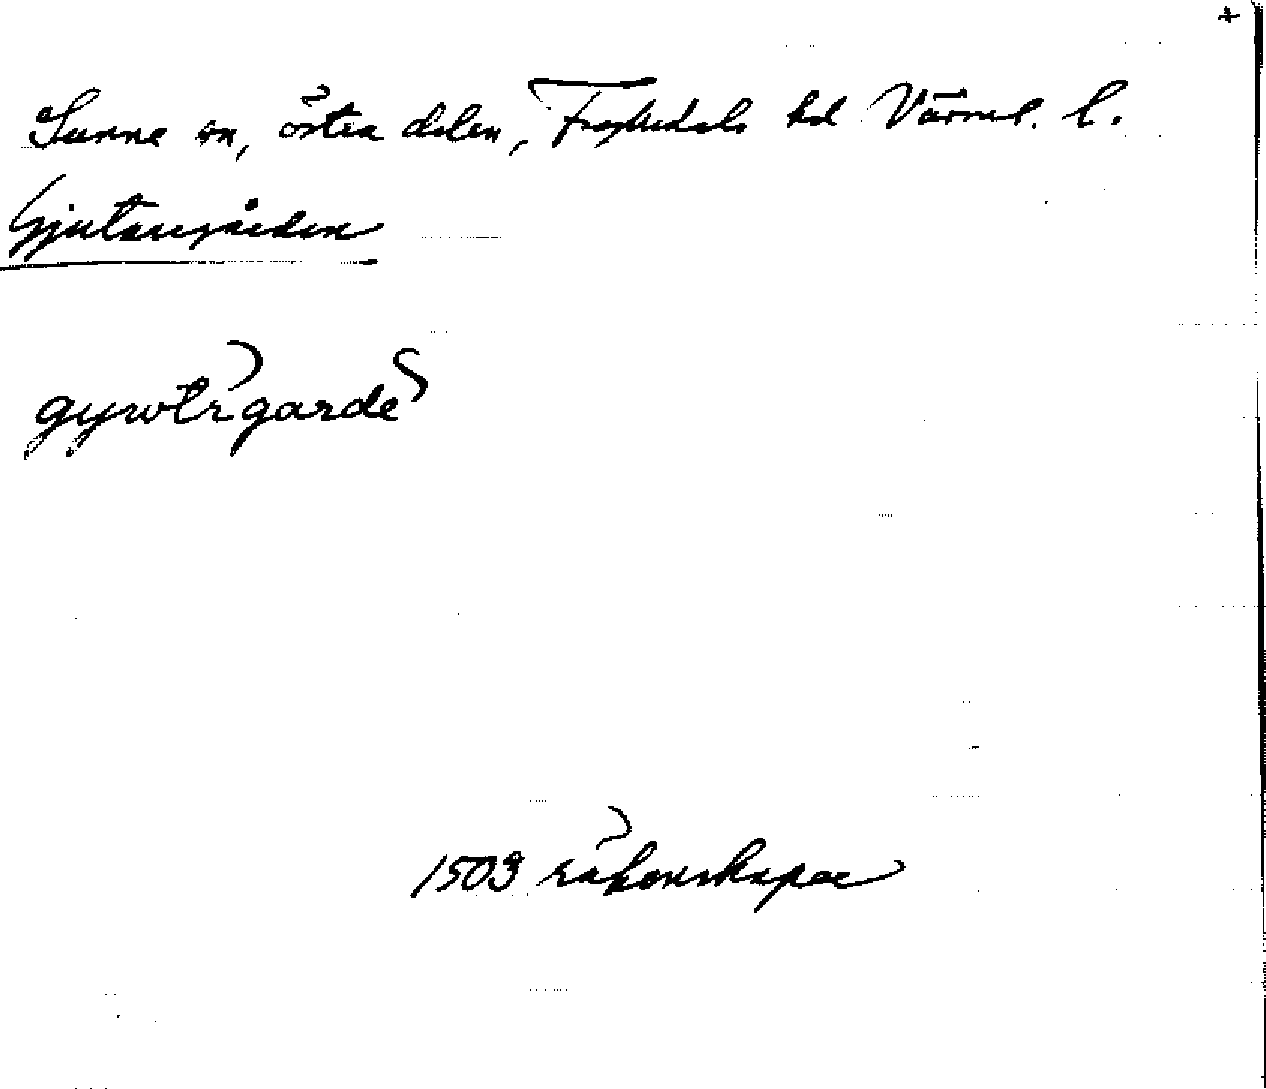 +
Sunne sn, östra delen, Fryksdals hd Värml. l.
Gjutaregården
1503 räkenskaper